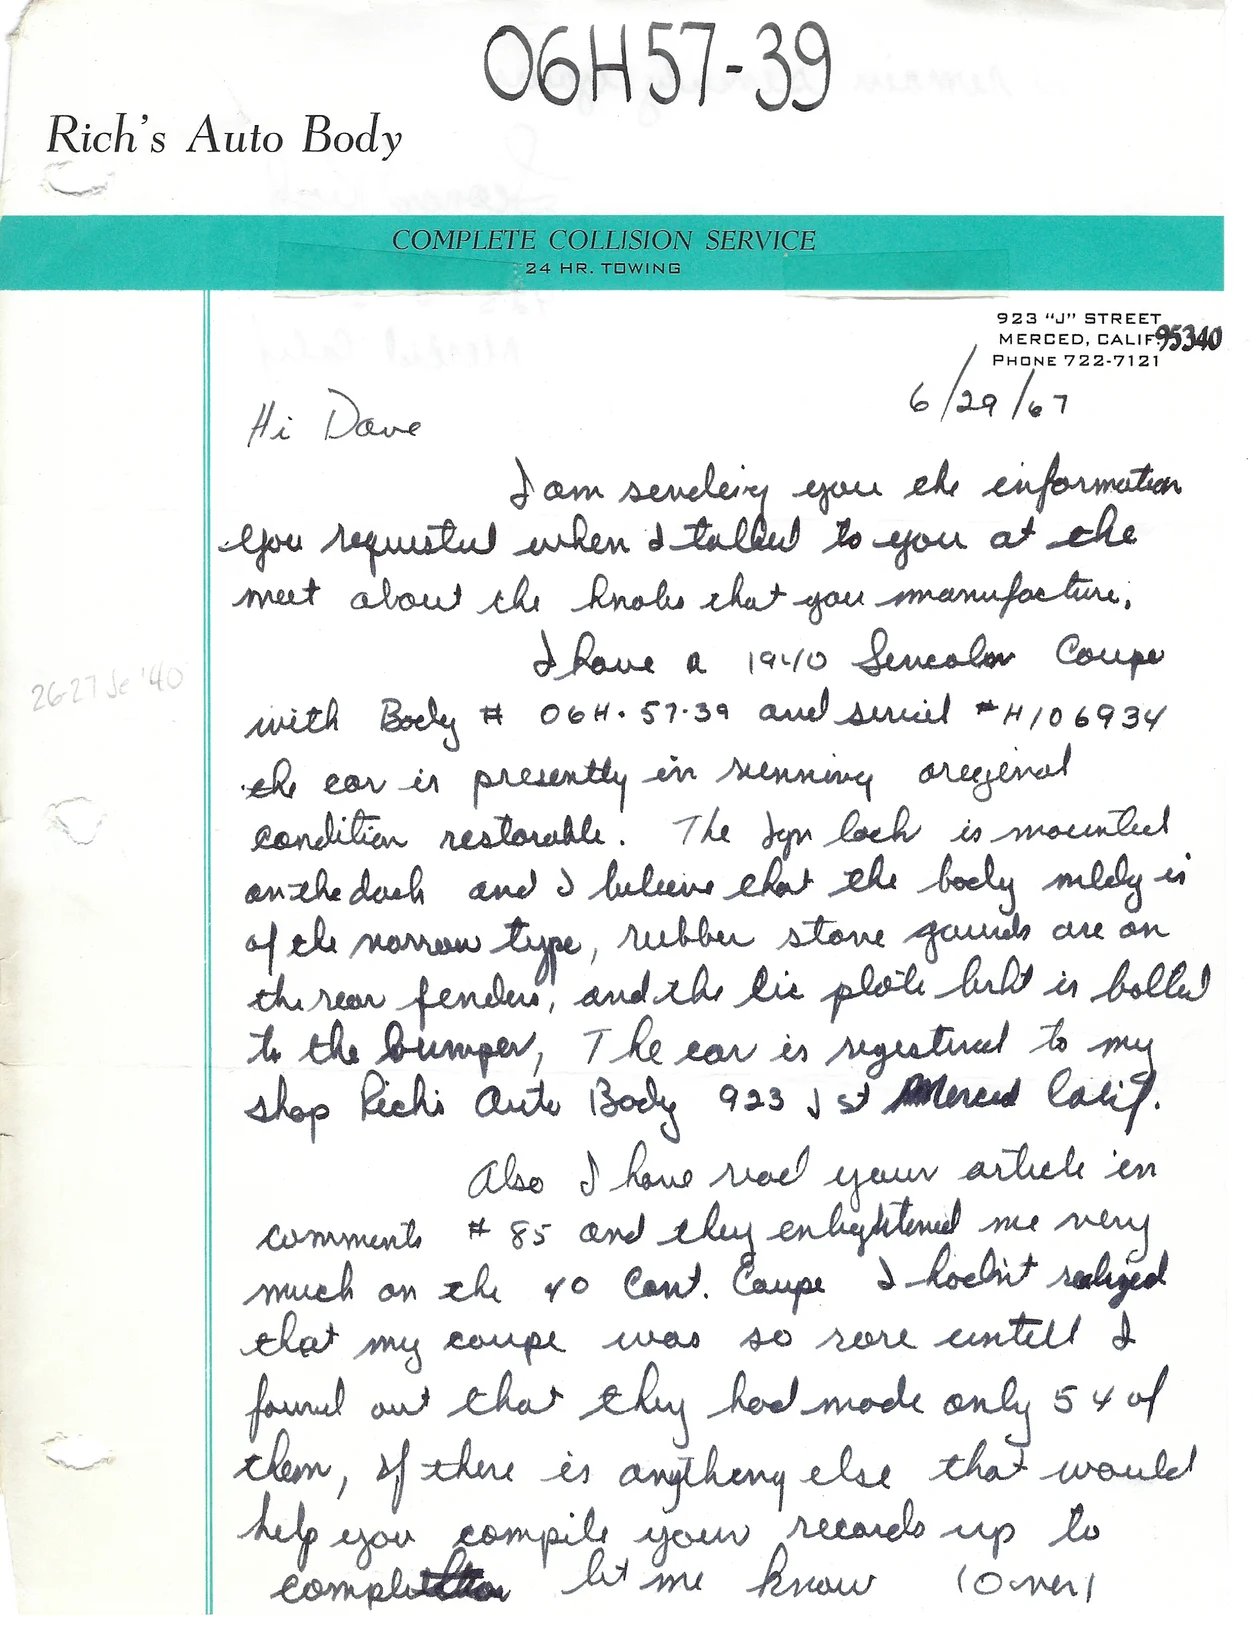 06H57-39
Rich's Auto Body
COMPLETE COLLISION SERVICE
24 HR. TOWING
923 "J" STREET
MERCED, CALIF. 95340
PHONE 722-7121
6/29/67
Hi Dave
I am sending you the information
you requested when I talked to you at the
meet about the knobs that you manufacture.
I have a 1940 Lincoln Coupe
26-27 Je '40
with Body # 06H.57.39 and serial #H106934
the car is presently in running original
condition restorable. The Ign lock is mounted
on the dash and I believe that the body mldg is
of the narrow type, rubber stone gaurds are on
the rear fenders, and the lic plate brkt is bolted
to the bumper, The car is registered to my
shop Rich's Auto Body 923 J St Merced Calif.
Also I have read your article in
comments # 85 and they enlightened me very
much on the 40 Cont. Coupe I hadn't realized
that my coupe was so rare untill I
found out that they had made only 54 of
them, If there is anything else that would
help you compile your records up to
let me know (Over)